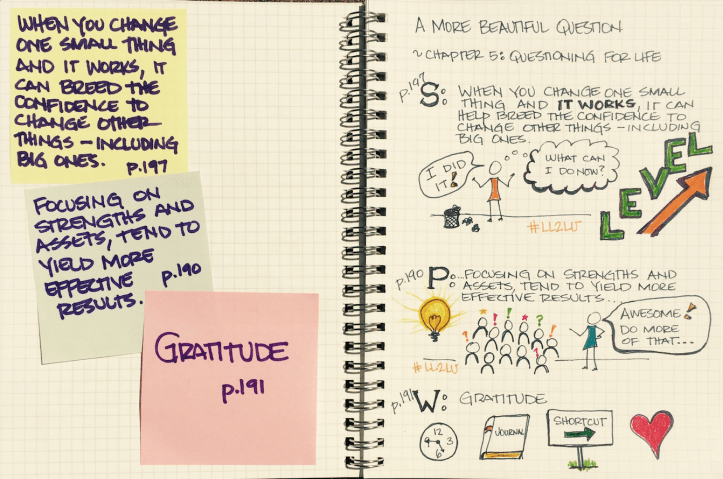 WHEN YOU CHANGE
ONE SMALL THING
AND IT WORKS, IT
CAN BREED THE
CONFIDENCE TO
CHANGE OTHER
THINGS - INCLUDING
BIG ONES.
p.197
FOCUSING ON
STRENGTHS AND
ASSETS, TEND TO
YIELD MORE
EFFECTIVE p.190
RESULTS.
GRATITUDE
p.191
A MORE BEAUTIFUL QUESTION
~ CHAPTER 5: QUESTIONING FOR LIFE
p.197
S: WHEN YOU CHANGE ONE SMALL
THING AND IT WORKS, IT CAN
HELP BREED THE CONFIDENCE TO
CHANGE OTHER THINGS - INCLUDING
BIG ONES.
I DID
IT!
WHAT CAN
I DO NOW?
LEVEL
#LL2LU
p.190
P: ...FOCUSING ON STRENGTHS AND
ASSETS, TEND TO YIELD MORE
EFFECTIVE RESULTS...
AWESOME!
DO MORE
OF THAT...
#LL2LU
p.191
W: GRATITUDE
12
9 3
6
JOURNAL
SHORTCUT